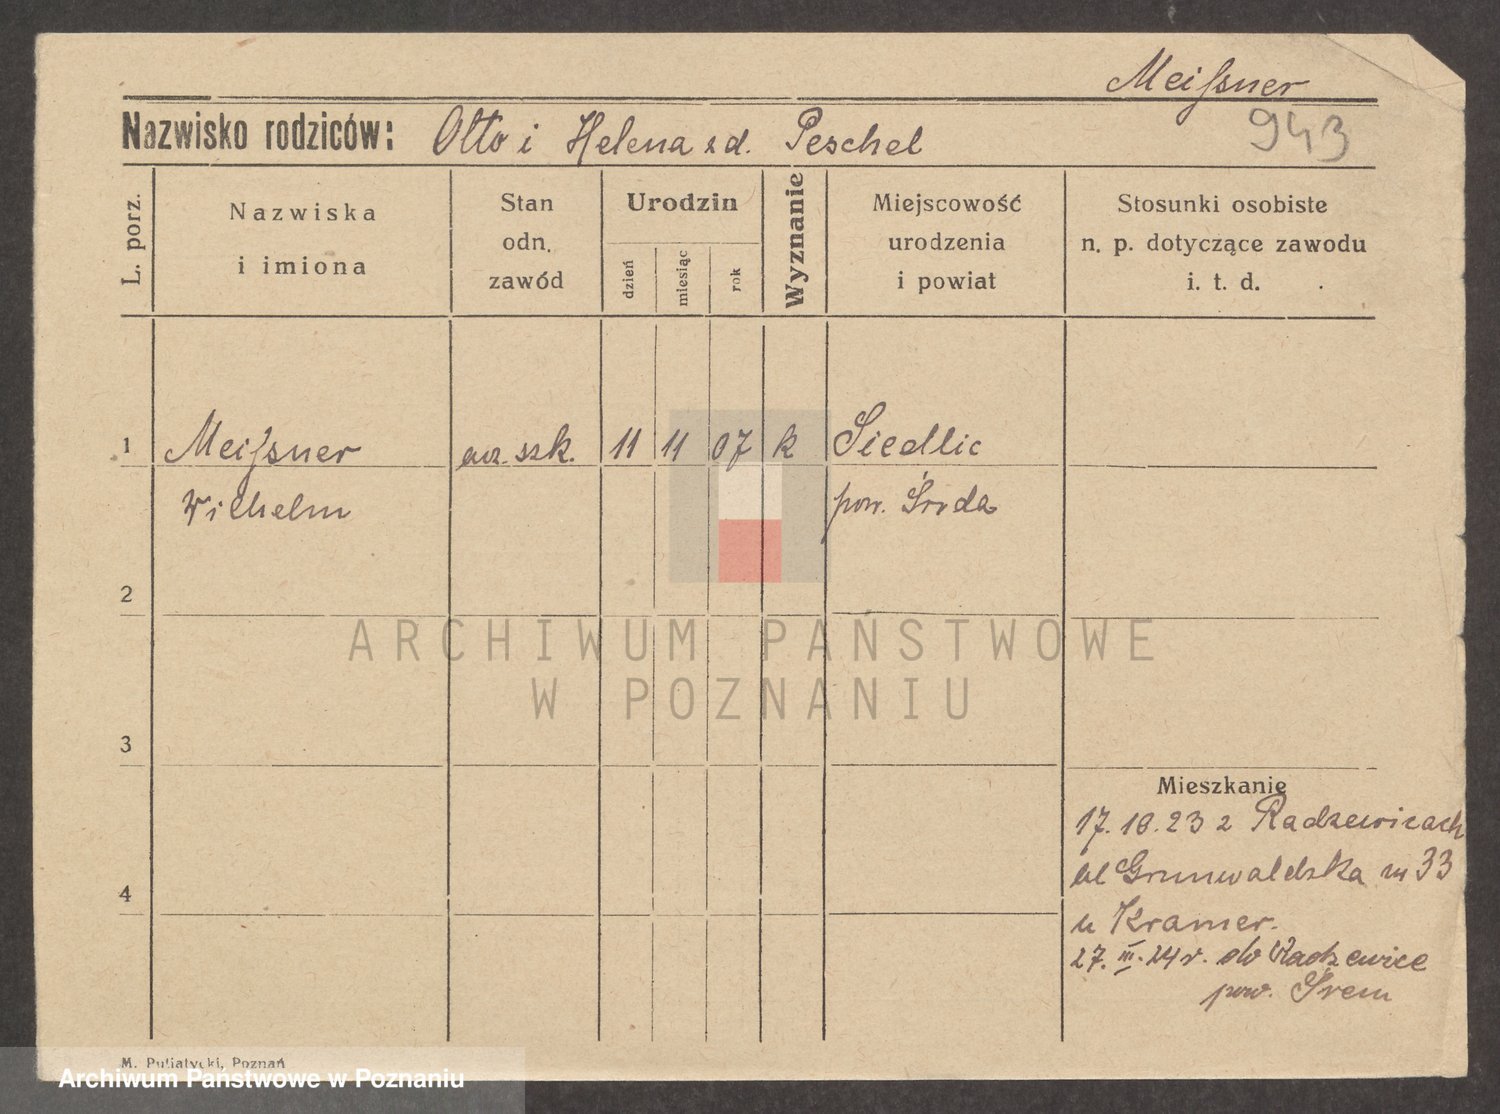 Meiſsner
Nazwisko rodziców: Otto i Helena z d. Peschel
943
L. porz.
Nazwiska
i imiona
Stan
odn.
zawód
Urodzin
dzień
miesiąc
rok
Wyznanie
Miejscowość
urodzenia
i powiat
Stosunki osobiste
n. p. dotyczące zawodu
i. t. d.
1 Meiſsner szk. 11 11 07 k Siedlic
Wilhelm pow. Środa
2
ARCHIWUM PAŃSTWOWE
W POZNANIU
3
Mieszkanie
17.10.23 z Radzewicach
ul Grunwaldska nr 33
4
u Kramer.
27. III. 24 r. do Radzewice
pow. Śrem
M. Putiatycki, Poznań
Archiwum Państwowe w Poznaniu